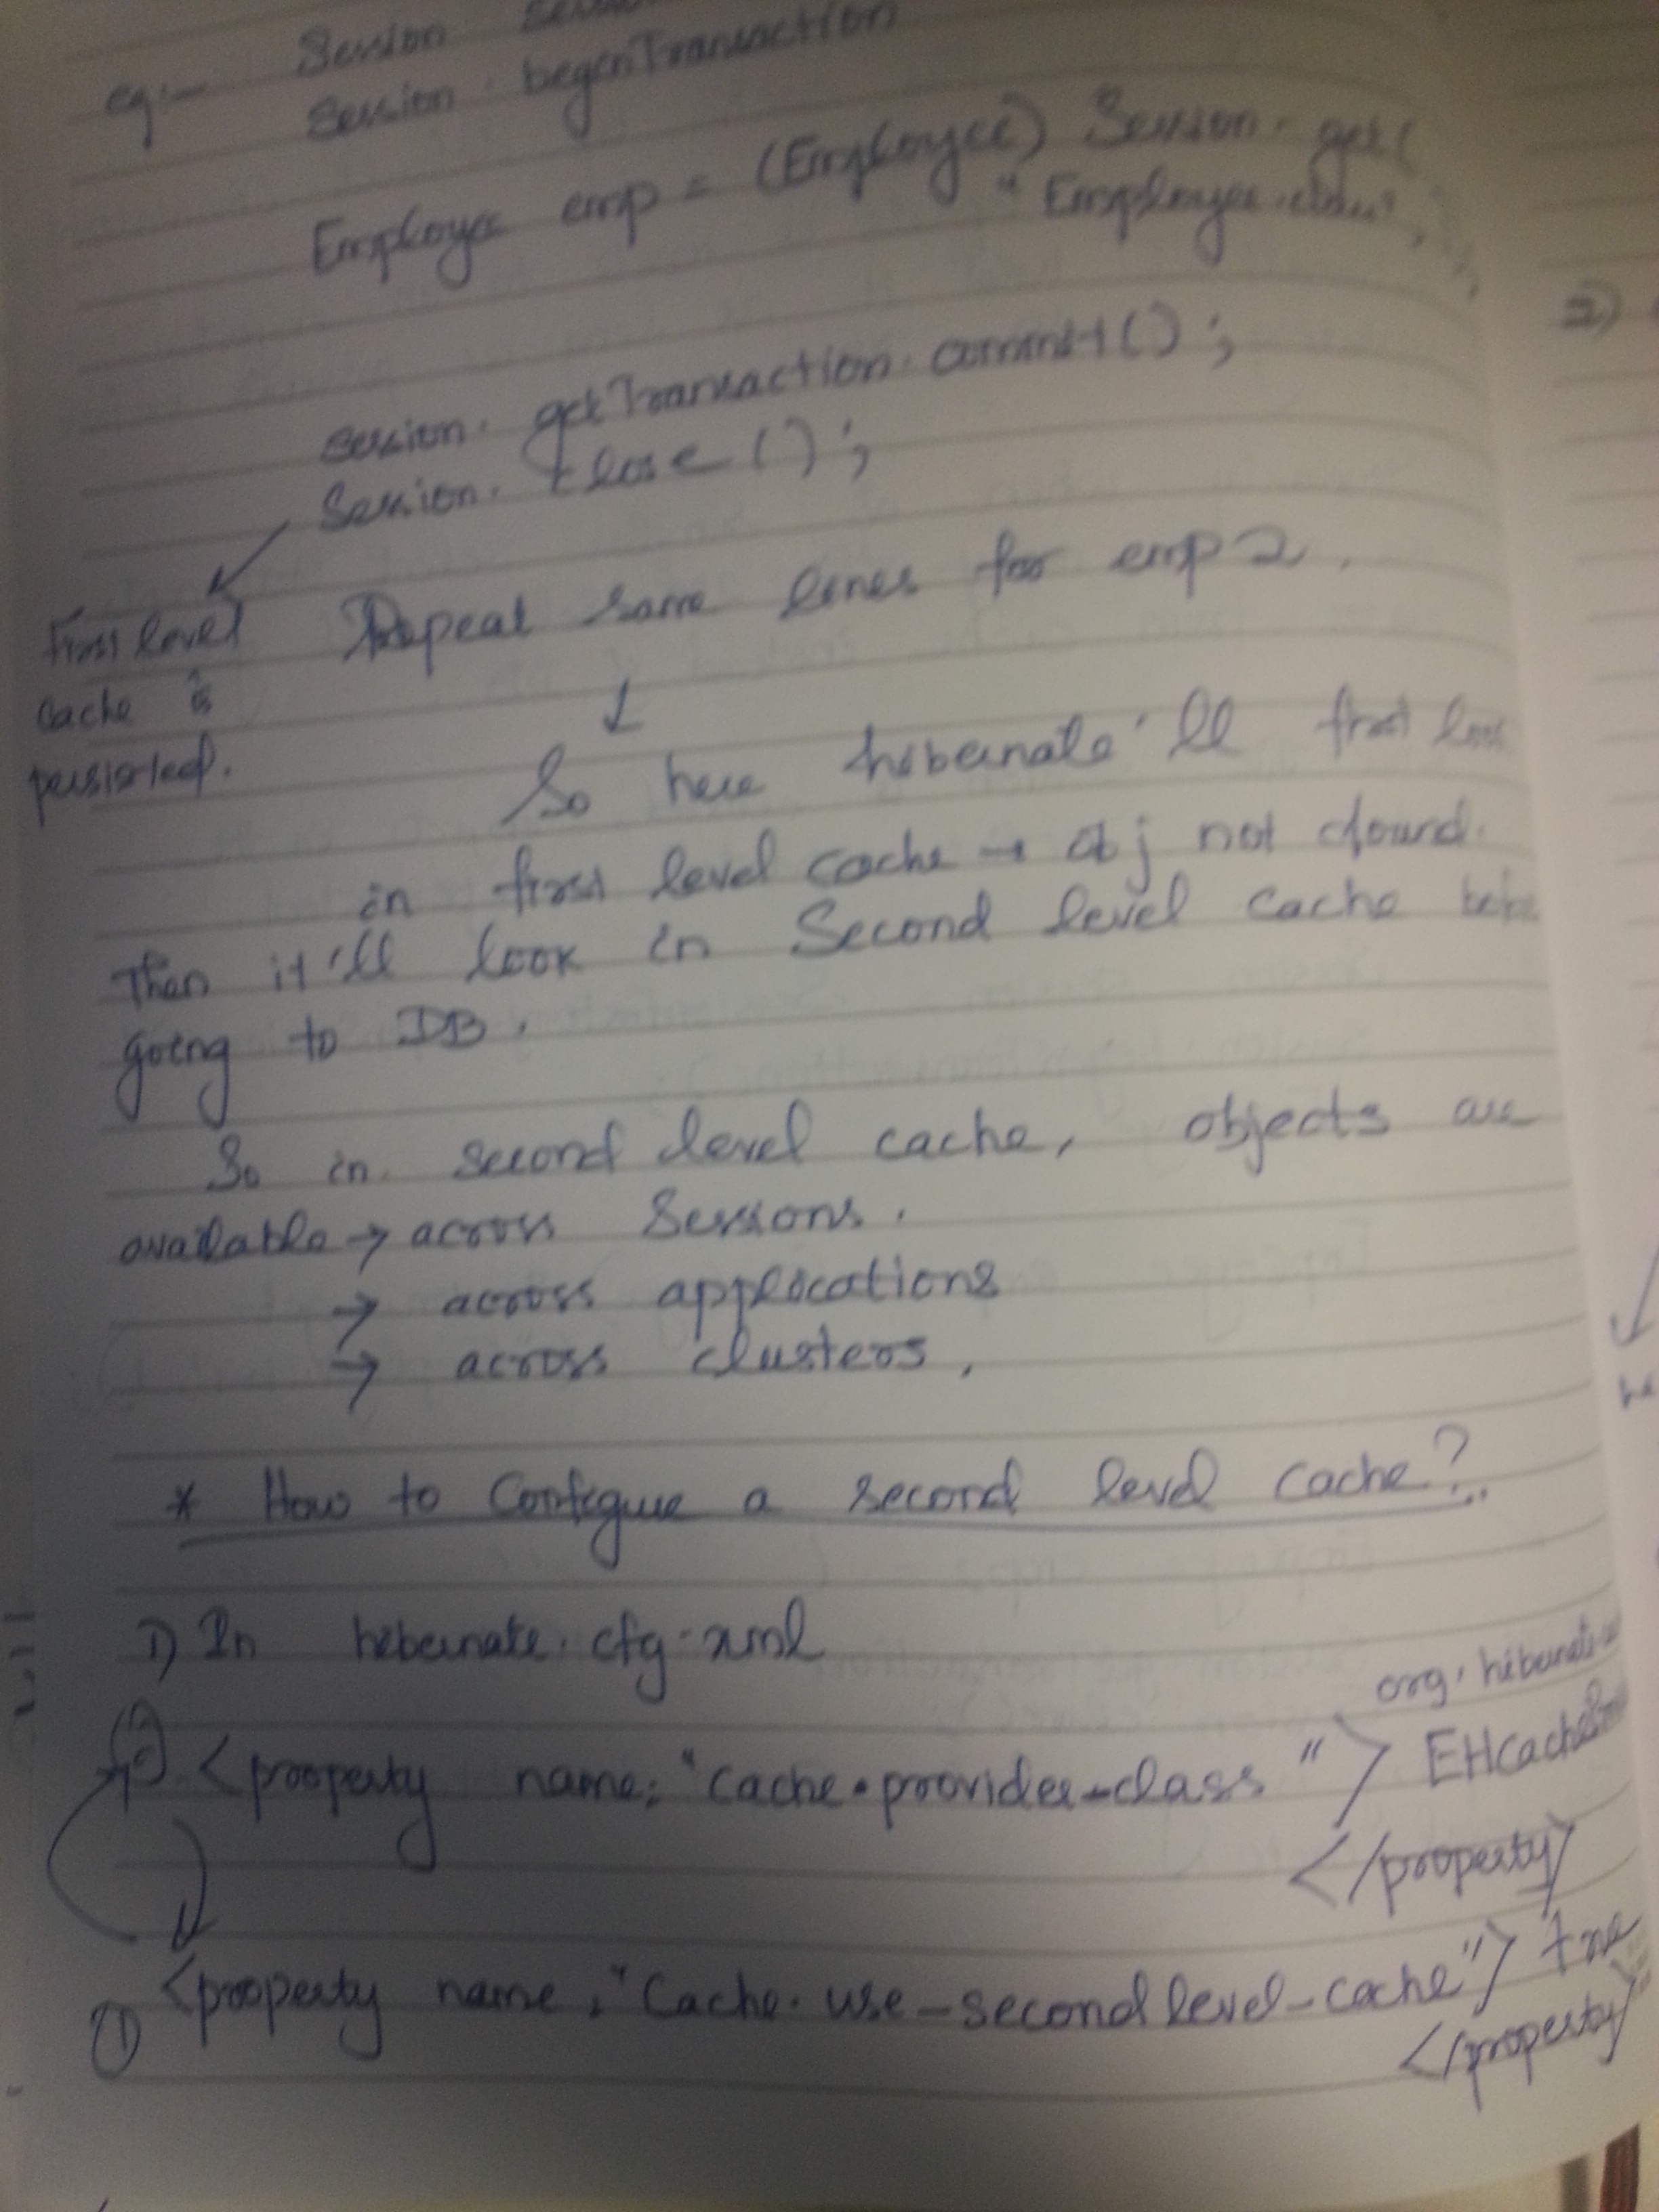 eg:- Session
Session. beginTransaction
Employee emp = (Employee) Session. get(
" Employee.class",
2)
session. getTransaction. commit();
Session. close();
First level
cache is
persisted.
Repeat same lines for emp2.
↓
So here hibernate'll first look
in first level cache → obj not found.
Then it'll look in Second level cache before
going to DB.
So in second level cache, objects are
available → across Sessions.
→ across applications
→ across clusters.
* How to Configure a second level cache?
1) In hibernate.cfg.xml
org.hibernate
② <property name: "cache.provider-class"> EHCache
</property>
① <property name: "Cache.use-second level-cache"> true
</property>